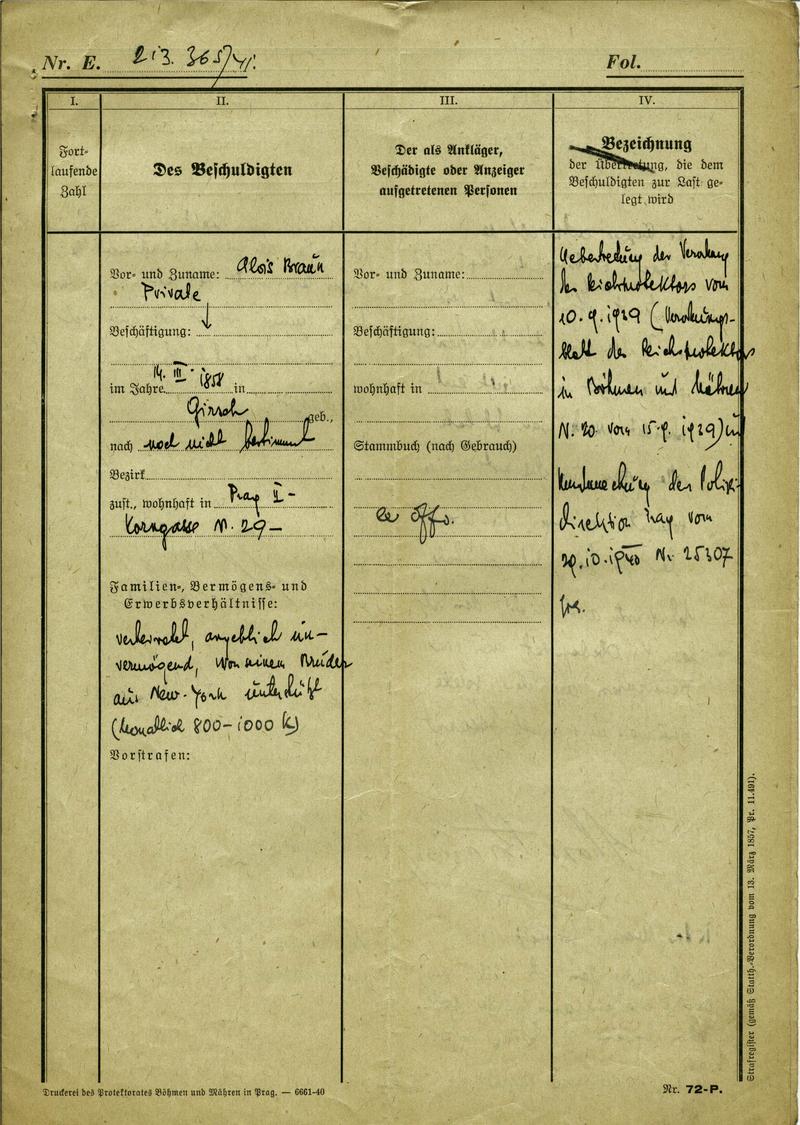 Nr. E. 213. 3657/41.
Fol.
I.
II.
III.
IV.
Fort-
laufende
Zahl
Des Beschuldigten
Der als Ankläger,
Beschädigte oder Anzeiger
aufgetretenen Personen
Bezeichnung
der Übertretung, die dem
Beschuldigten zur Last ge-
legt wird
Vor- und Zuname: Alois Braun
Private
Beschäftigung:
14. III. 1858
im Jahre in
Girsch
geb.,
nach noch nicht bestimmt
Bezirk
zust., wohnhaft in Prag II-
Korngasse N. 29-
Familien-, Vermögens- und
Erwerbsverhältnisse:
verheiratet, angeblich un-
vermögend, von seinem Bruder
aus New-York unterstützt
(monatlich 800-1000 K)
Vorstrafen:
Vor- und Zuname:
Beschäftigung:
wohnhaft in
Stammbuch (nach Gebrauch)
ex offo.
Uebertretung der Verordnung
des Reichsprotektors vom
10.9.1939 (Verordnungs-
blatt des Reichsprotektors
in Böhmen und Mähren
N. 20 vom 15.9.1939) u
Kundmachung der Polizei-
direktion Prag vom
29.10.1940 Nr. 25307
Druckerei des Protektorates Böhmen und Mähren in Prag. — 6661-40
Nr. 72-P.
Strafregister (gemäß Statth.-Verordnung vom 13. März 1857, Pr. 11.491).